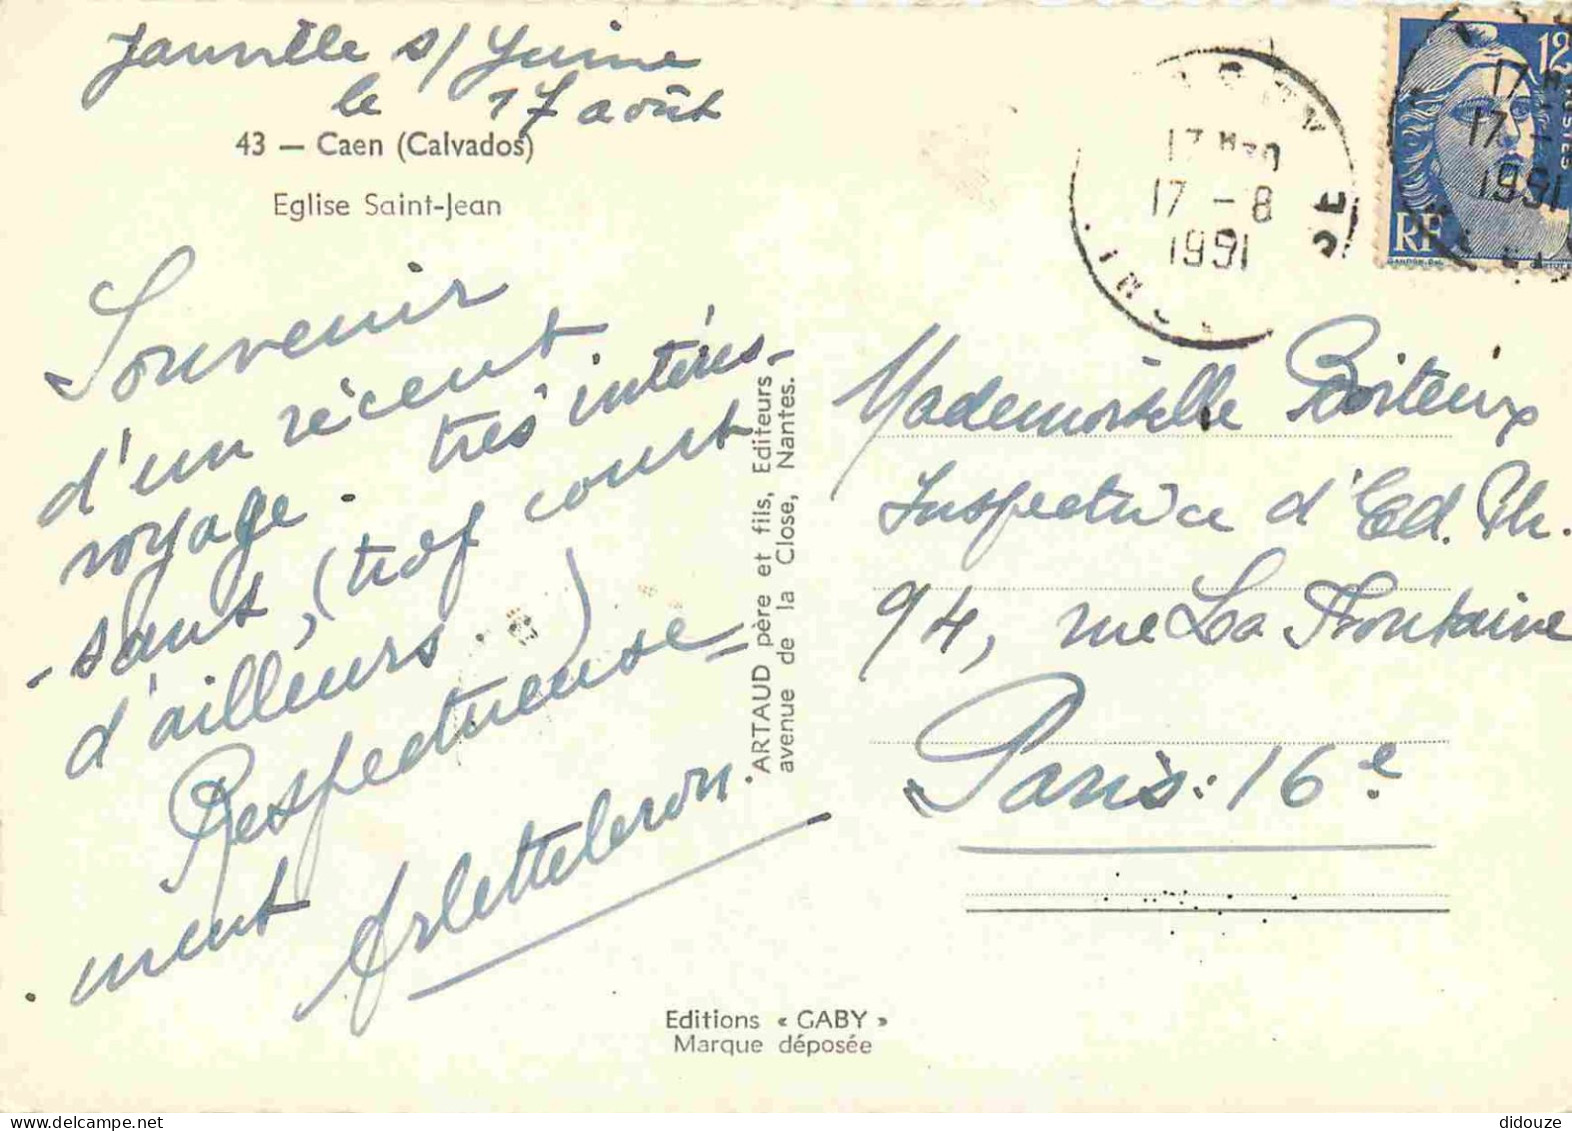 Janville s/ Juine
le 17 août
43 — Caen (Calvados)
Eglise Saint-Jean
Souvenir
d'un récent
voyage. très intéres-
-sant, (trop court
d'ailleurs)
Respectueuse=
ment
ArletteLeron.
ARTAUD père et fils, Editeurs
avenue de la Close, Nantes.
Editions « GABY »
Marque déposée
17 H30
17 - 8
1951
12
POSTES
RF
17 H
17 -
1951
Mademoiselle Boiteux
Inspectrice d'Ed. Ph.
94, rue La Fontaine
Paris: 16e
didouze